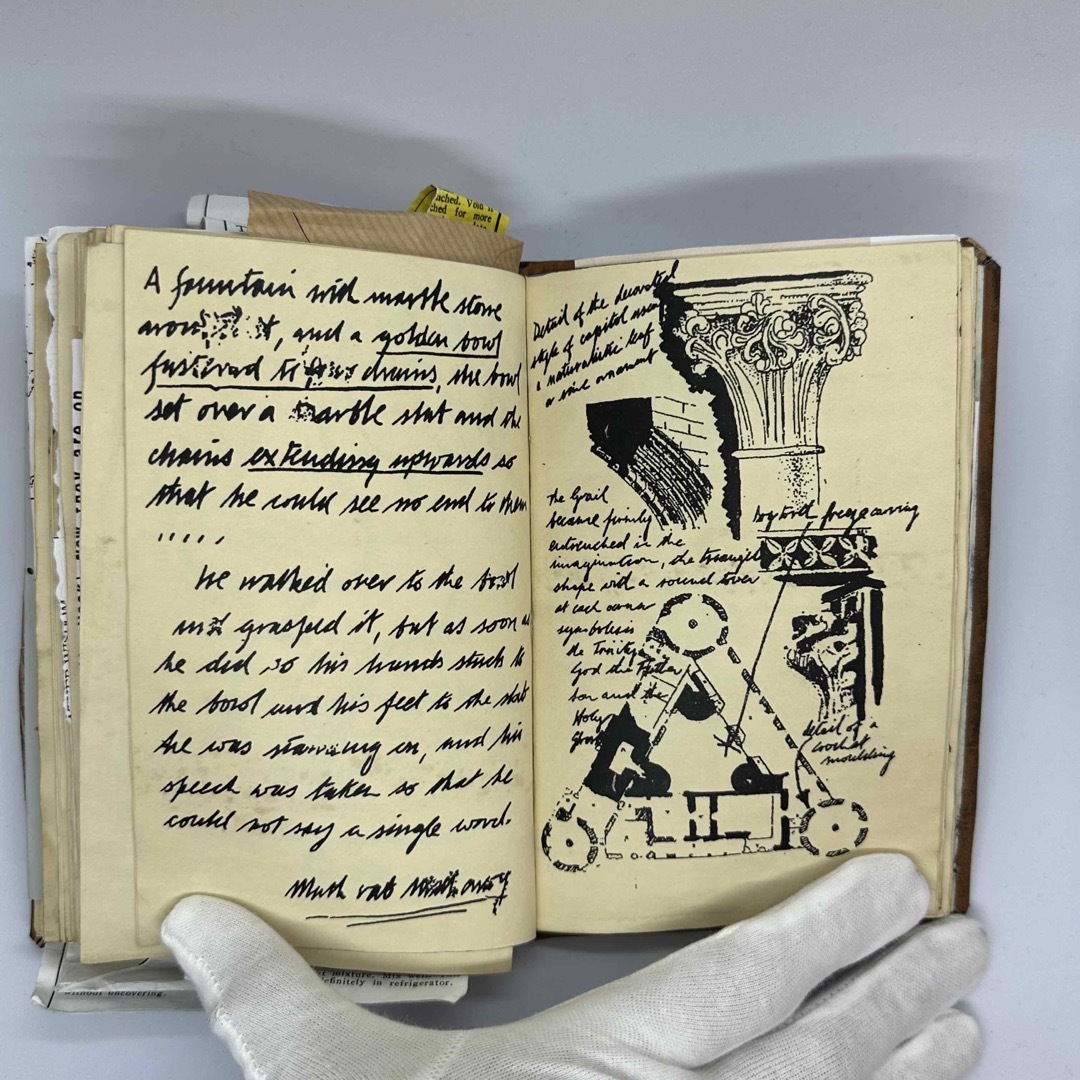 ached. Void if
ched for more
A fountain with marble stone
it, and a golden bowl
fastened to four chains, the bowl
set over a marble slab and the
chains extending upwards so
that he could see no end to them
.....
He walked over to the bowl
and grasped it, but as soon as
he did so his hands stuck to
the bowl and his feet to the slab
he was standing on, and his
speech was taken so that he
could not say a single word.
Detail of the decorated
style of capital using
a naturalistic leaf
or vine ornament
the Grail
became firmly
entrenched in the
imagination, the triangle
shape with a round tower
at each corner
symbolises
the Trinity
God the Father
Son and the
Holy
Ghost
dogtooth frieze carving
detail of a
crochet
moulding
mixture. Mix well.
efinitely in refrigerator.
without uncovering.